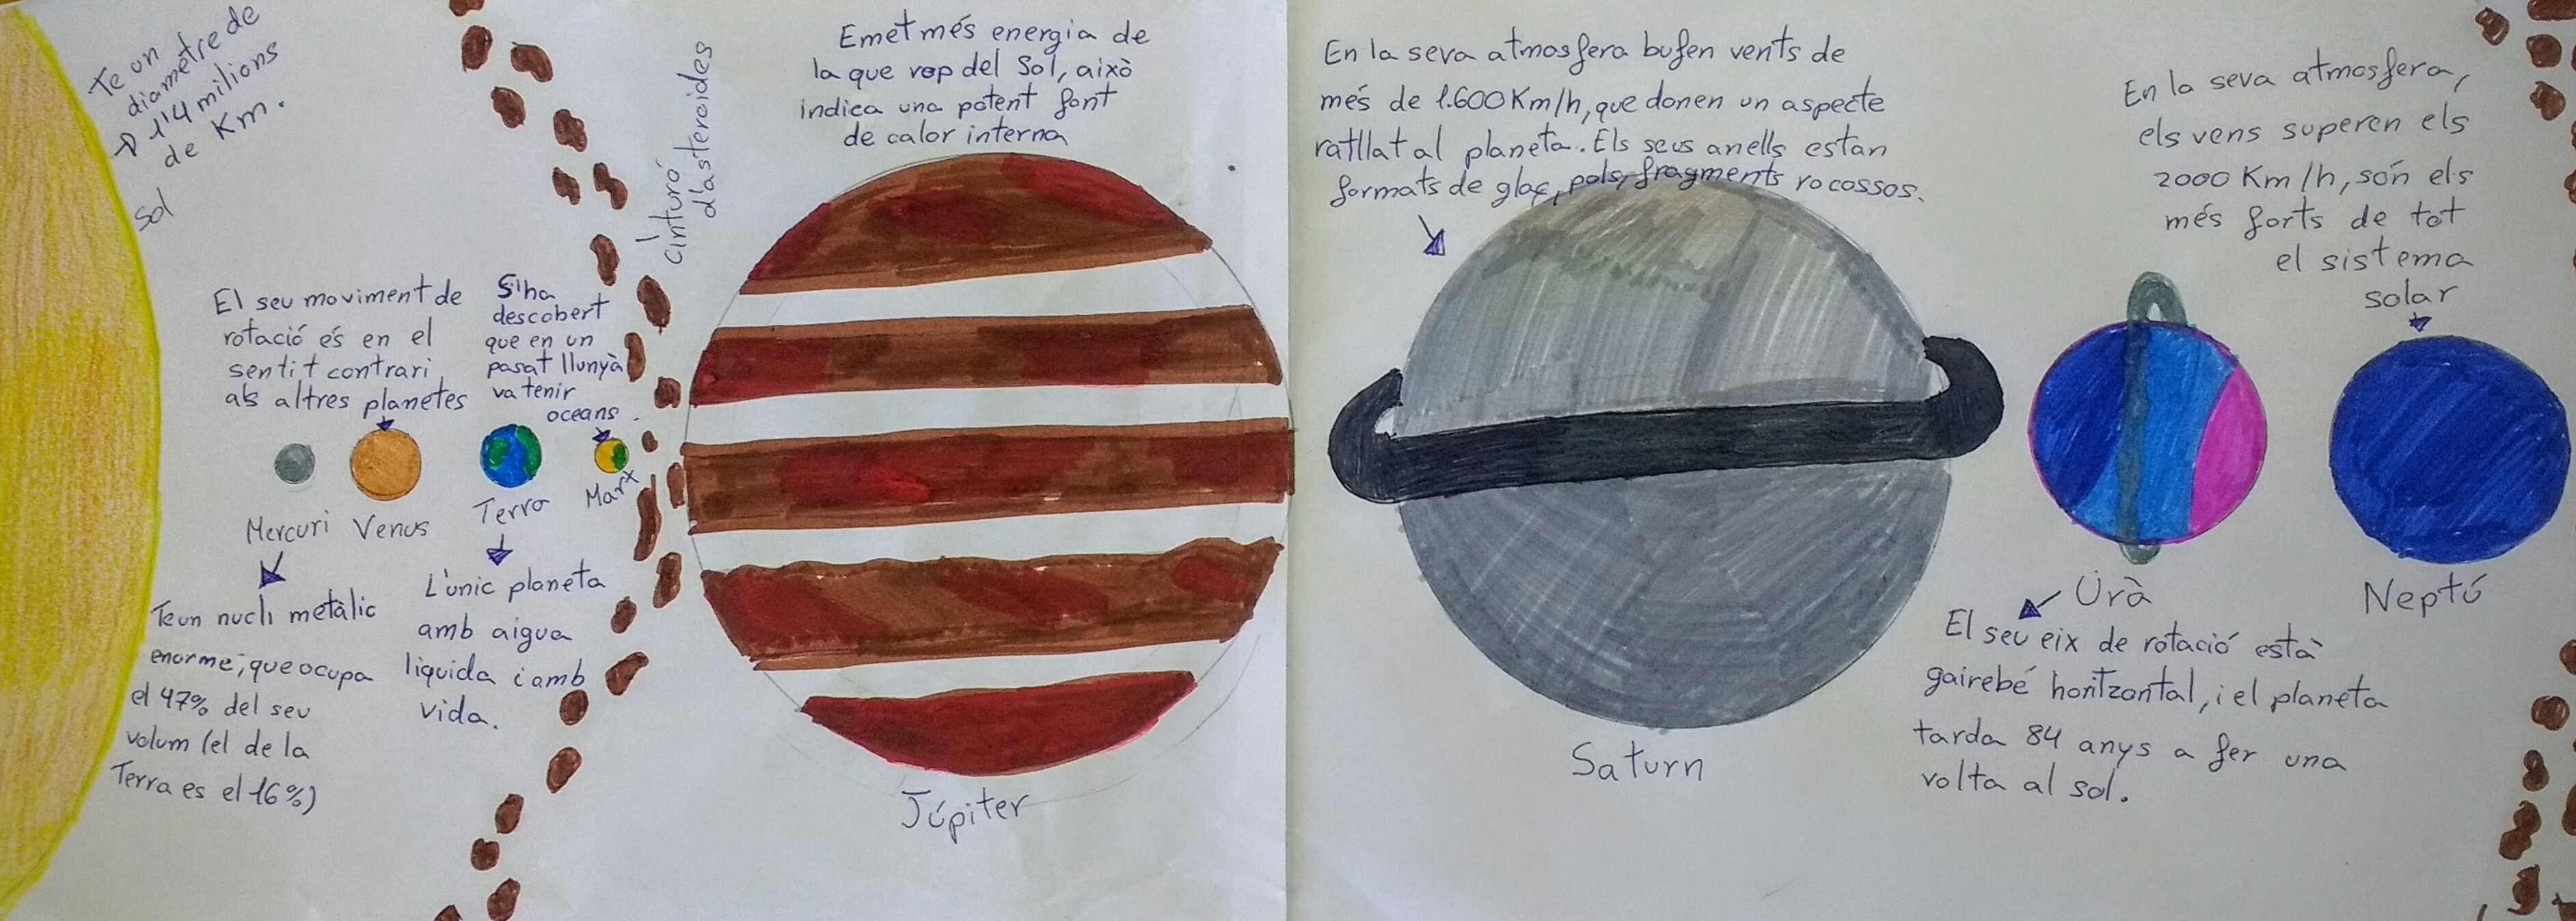 Te un
diamètre de
1'4 milions
de Km.
Sol
El seu moviment de
rotació és en el
sentit contrari
als altres planetes
S'ha
descobert
que en un
pasat llunyà
va tenir
oceans.
Mercuri
Venus
Terra
Mart
Te un nucli metàlic
enorme, que ocupa
el 47% del seu
volum (el de la
Terra es el 16%)
L'unic planeta
amb aigua
liquida i amb
vida.
Cinturó
d'asteroides
Emet més energia de
la que rep del Sol, això
indica una potent font
de calor interna
Júpiter
En la seva atmosfera bufen vents de
més de 1.600 Km/h, que donen un aspecte
ratllat al planeta. Els seus anells estan
formats de glaç, pols, fragments rocossos.
Saturn
Urà
El seu eix de rotació està
gairebé horitzontal, i el planeta
tarda 84 anys a fer una
volta al sol.
En la seva atmosfera,
els vens superen els
2000 Km/h, són els
més forts de tot
el sistema
solar
Neptú